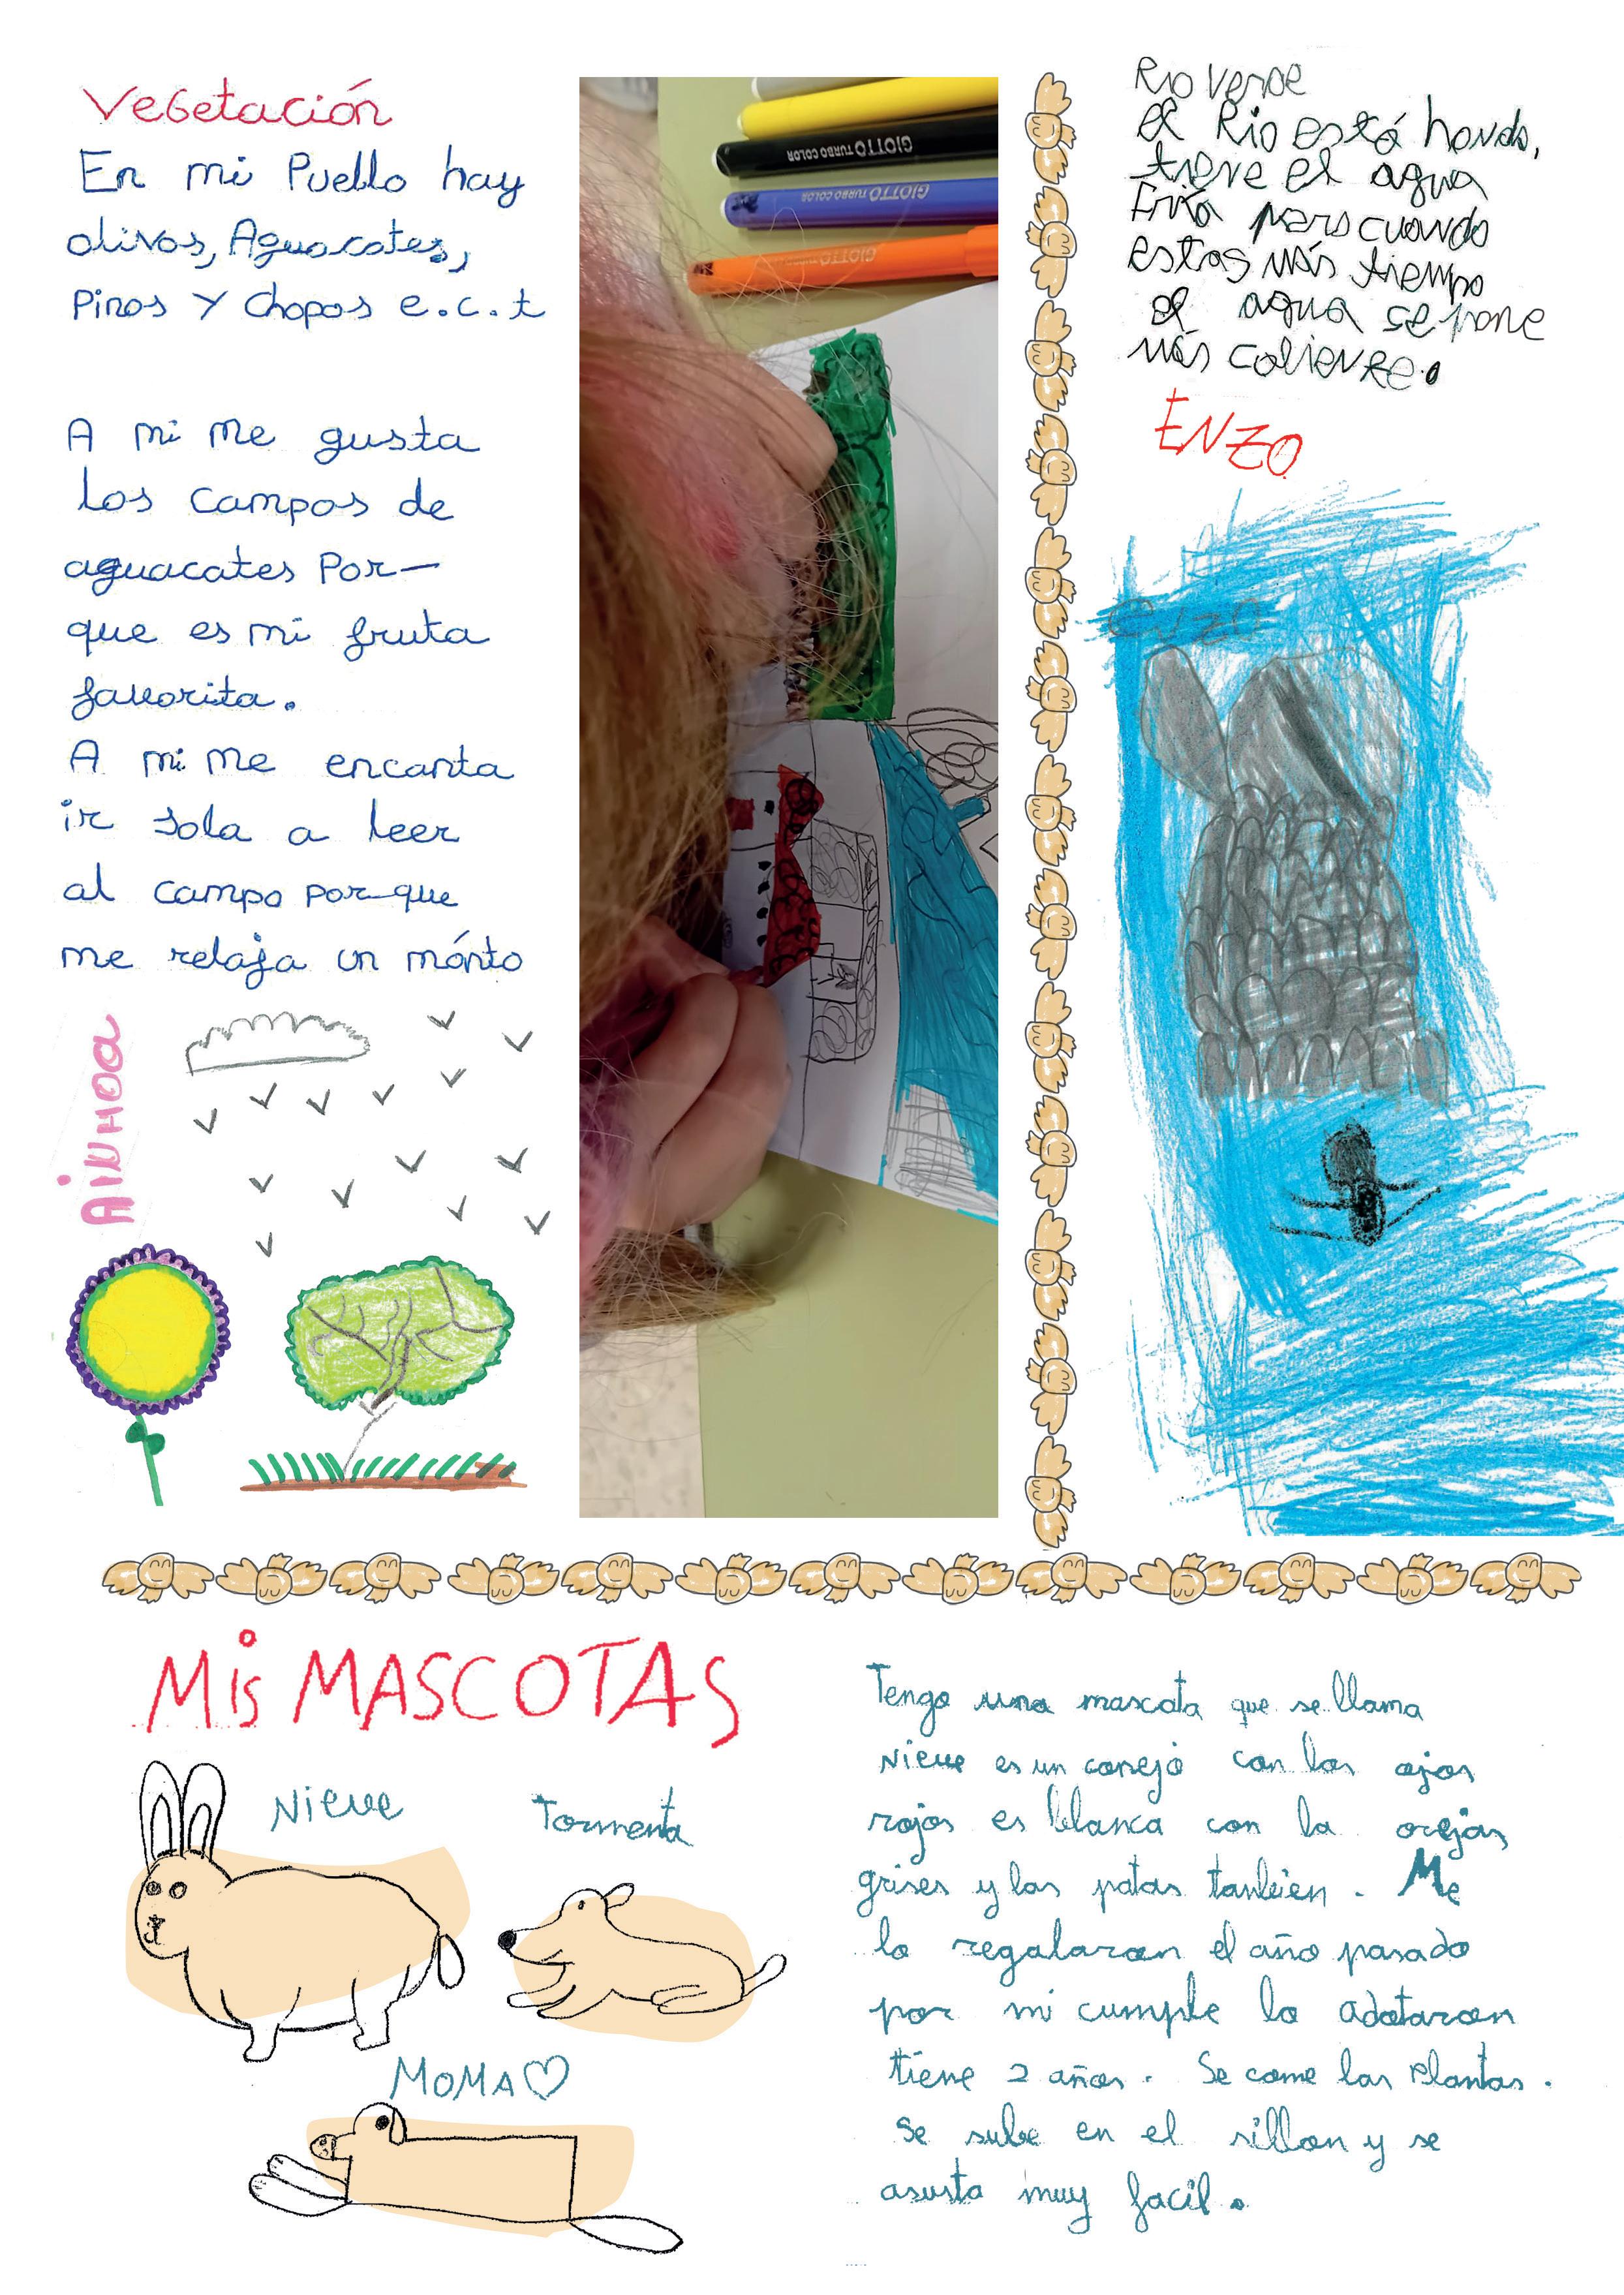 Vegetación
En mi Pueblo hay
olivos, Aguacates,
Pinos Y chopos e.c.t
A mi me gusta
los campos de
aguacates Por-
que es mi fruta
favorita.
A mi me encanta
ir sola a leer
al campo por que
me relaja un mónto
AiNHOA
GIOTTO TURBO COLOR
GIOTTO TURBO COLOR
GIOTTO TURBO COLOR
Rio Verde
el Rio está hondo,
tiene el agua
Fria pero cuando
estas más tiempo
el agua se pone
más caliente.
ENZO
enzo
Mis MASCOTAS
Nieve
Tormenta
MOMA
Tengo una mascota que se llama
Nieve es un conejo con los ojos
rojos es blanca con la orejas
grises y las patas tanbien. Me
lo regalaron el año pasado
por mi cumple lo adotaron
tiene 2 años. Se come las Plantas.
Se sube en el sillon y se
asusta muy facil.